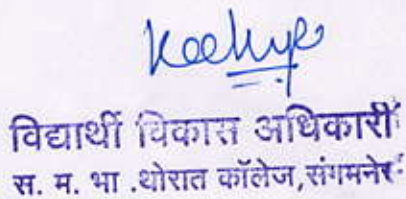 विद्यार्थी विकास अधिकारी
स. म. भा .थोरात कॉलेज,संगमनेर